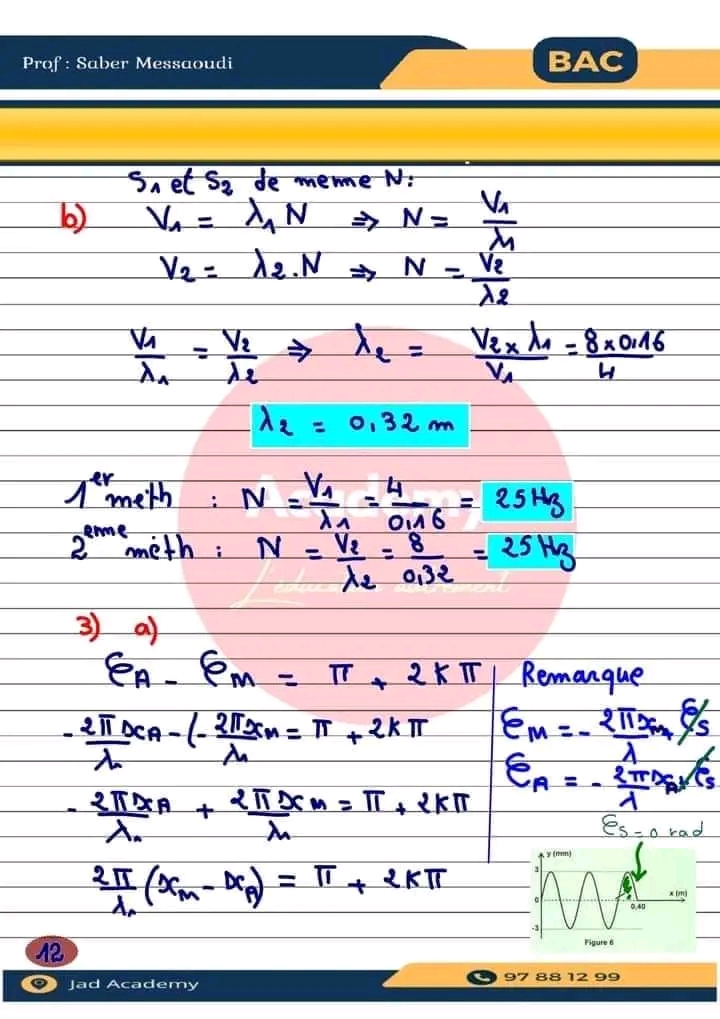 Prof : Saber Messaoudi
BAC
S₁ et S₂ de meme N:
b) V₁ = λ₁ N ⇒ N = V₁/λ₁
V₂ = λ₂.N ⇒ N = V₂/λ₂
V₁/λ₁ = V₂/λ₂ ⇒ λ₂ = V₂ x λ₁/V₁ = 8 x 0,16/4
λ₂ = 0,32 m
Academy
1er meth : N = V₁/λ₁ = 4/0,16 = 25 Hz
2eme méth : N = V₂/λ₂ = 8/0,32 = 25 Hz
L'éducation autrement
3) a)
φA - φM = π + 2Kπ
-2πxA/λ₁ - (-2πxM/λ₁ = π + 2Kπ
-2πxA/λ₁ + 2πxM/λ₁ = π + 2Kπ
2π/λ₁ (xM - xA) = π + 2Kπ
Remarque
φM = - 2πxM/λ + φs
φA = - 2πxA/λ + φs
φs = 0 rad
y (mm)
3
0
-3
0,40
x (m)
Figure 6
12
Jad Academy
97 88 12 99